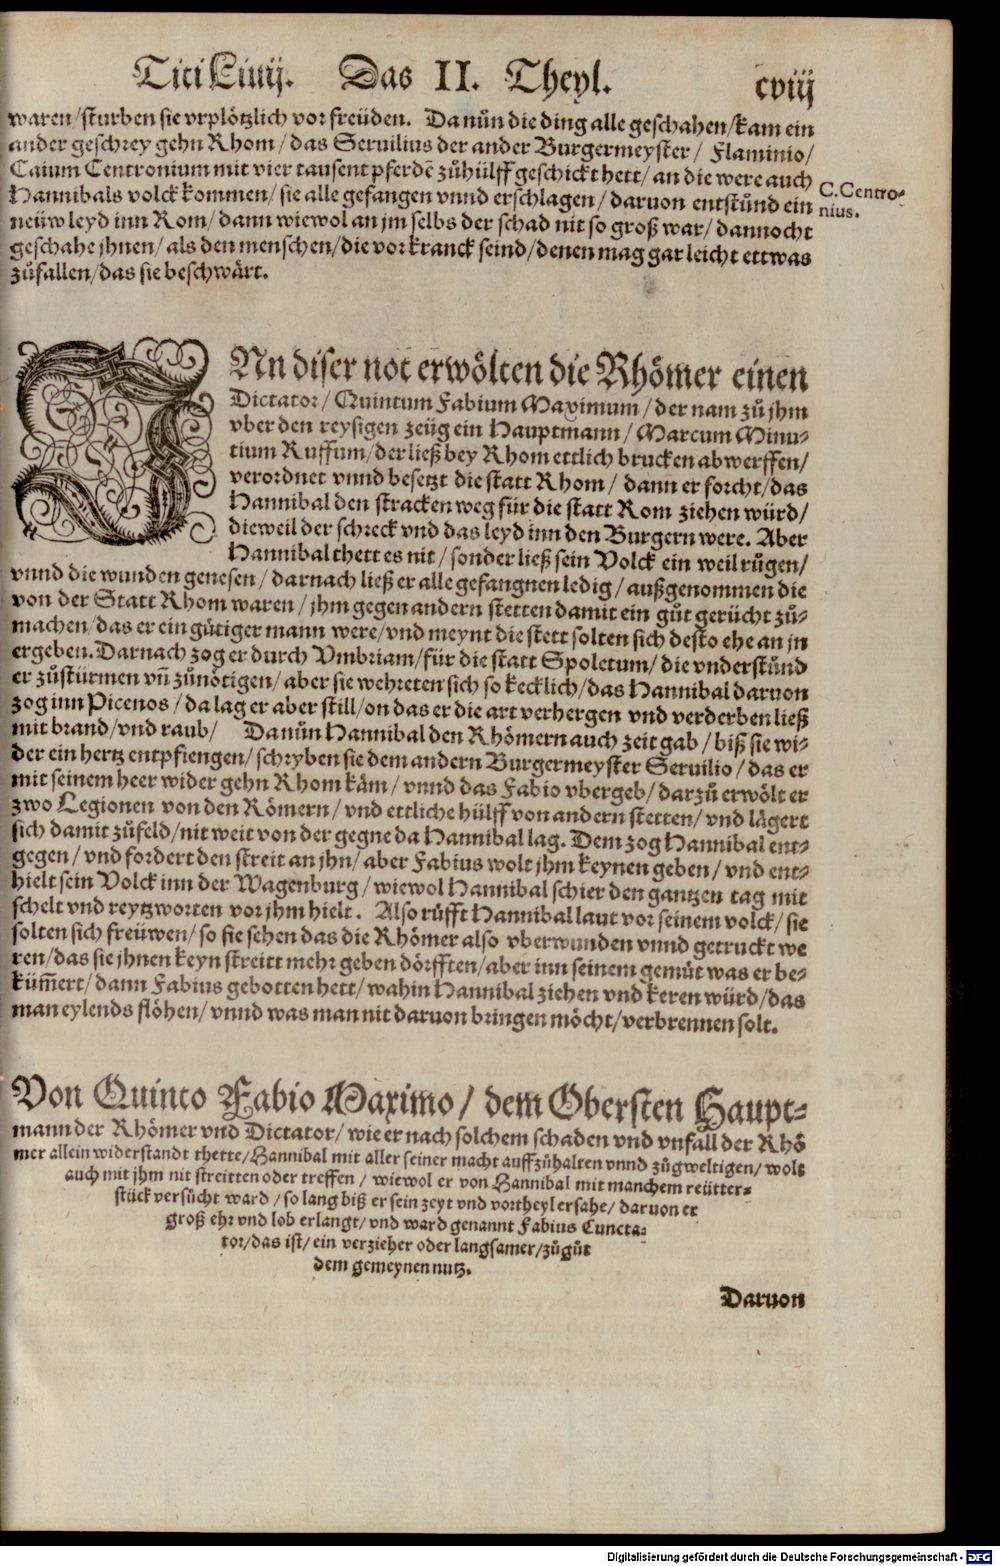 Titi Liuij. Das II. Theyl. cviij
waren/sturben sie vrplötzlich vor freüden. Da nůn die ding alle geschahen/kam ein
ander geschrey gehn Rhom/das Seruilius der ander Burgermeyster/ Flaminio/
Caium Centronium mit vier tausent pferdẽ zůhülff geschickt hett/an die were auch
Hannibals volck kommen/sie alle gefangen vnnd erschlagen/daruon entstůnd ein
neüw leyd inn Rom/dann wiewol an jm selbs der schad nit so groß war/dannocht
geschahe jhnen/als den menschen/die vor kranck seind/denen mag gar leicht ettwas
zůfallen/das sie beschwärt.
C. Centro-
nius.
INn diser not erwölten die Rhömer einen
Dictator/Quintum Fabium Maximum/der nam zů jhm
vber den reysigen zeüg ein Hauptmann/Marcum Minu-
tium Ruffum/der ließ bey Rhom ettlich brucken abwerffen/
verordnet vnnd besetzt die statt Rhom/dann er forcht/das
Hannibal den stracken weg für die statt Rom ziehen würd/
dieweil der schreck vnd das leyd inn den Burgern were. Aber
Hannibal thett es nit/sonder ließ sein Volck ein weil růgen/
vnnd die wunden genesen/darnach ließ er alle gefangnen ledig/außgenommen die
von der Statt Rhom waren/jhm gegen andern stetten damit ein gůt gerücht zů-
machen/das er ein gütiger mann were/vnd meynt die stett solten sich desto ehe an jn
ergeben. Darnach zog er durch Vmbriam/für die statt Spoletum/die vnderstůnd
er zůstürmen vñ zůnötigen/aber sie wehreten sich so kecklich/das Hannibal daruon
zog inn Picenos/da lag er aber still/on das er die art verhergen vnd verderben ließ
mit brand/vnd raub/ Da nůn Hannibal den Rhömern auch zeit gab/biß sie wi-
der ein hertz entpfiengen/schryben sie dem andern Burgermeyster Seruilio/das er
mit seinem heer wider gehn Rhom käm/vnnd das Fabio vbergeb/darzů erwölt er
zwo Legionen von den Römern/vnd ettliche hülff von andern stetten/vnd lägert
sich damit zůfeld/nit weit von der gegne da Hannibal lag. Dem zog Hannibal ent-
gegen/vnd fordert den streit an jhn/aber Fabius wolt jhm keynen geben/vnd ent-
hielt sein Volck inn der Wagenburg/wiewol Hannibal schier den gantzen tag mit
schelt vnd reytzworten vor jhm hielt. Also růfft Hannibal laut vor seinem volck/sie
solten sich freüwen/so sie sehen das die Rhömer also vberwunden vnnd getruckt we
ren/das sie jhnen keyn streitt mehr geben dörfften/aber inn seinem gemůt was er be-
küm̃ert/dann Fabius gebotten hett/wahin Hannibal ziehen vnd keren würd/das
man eylends flöhen/vnnd was man nit daruon bringen möcht/verbrennen solt.
Von Quinto Fabio Maximo/dem Obersten Haupt-
mann der Rhömer vnd Dictator/wie er nach solchem schaden vnd vnfall der Rhö
mer allein widerstandt thette/Hannibal mit aller seiner macht auffzůhalten vnnd zůgweltigen/wolt
auch mit jhm nit streitten oder treffen/wiewol er von Hannibal mit manchem reütter-
stück versůcht ward/so lang biß er sein zeyt vnd vortheyl ersahe/daruon er
groß ehr vnd lob erlangt/vnd ward genannt Fabius Cuncta-
tor/das ist/ein verzieher oder langsamer/zůgůt
dem gemeynen nutz.
Daruon
Digitalisierung gefördert durch die Deutsche Forschungsgemeinschaft - DFG